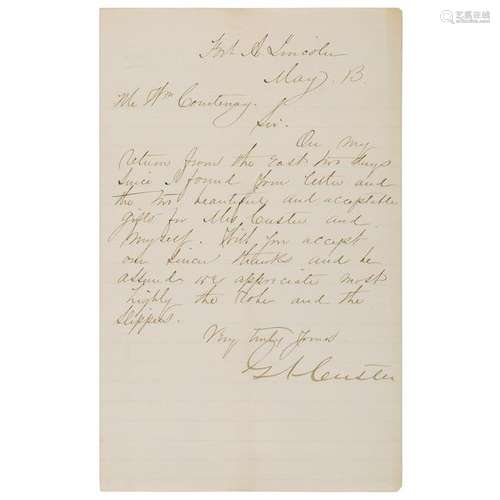 Fort A. Lincoln
May 13.
Mr Wm Courtenay.
Sir.
On my
return from the East two days
since I found your letter and
the two beautiful and acceptable
gifts for Mrs Custer and
myself. Will you accept
our sincere thanks and be
assured we appreciate most
highly the Robe and the
slippers.
Very truly yours
G A Custer